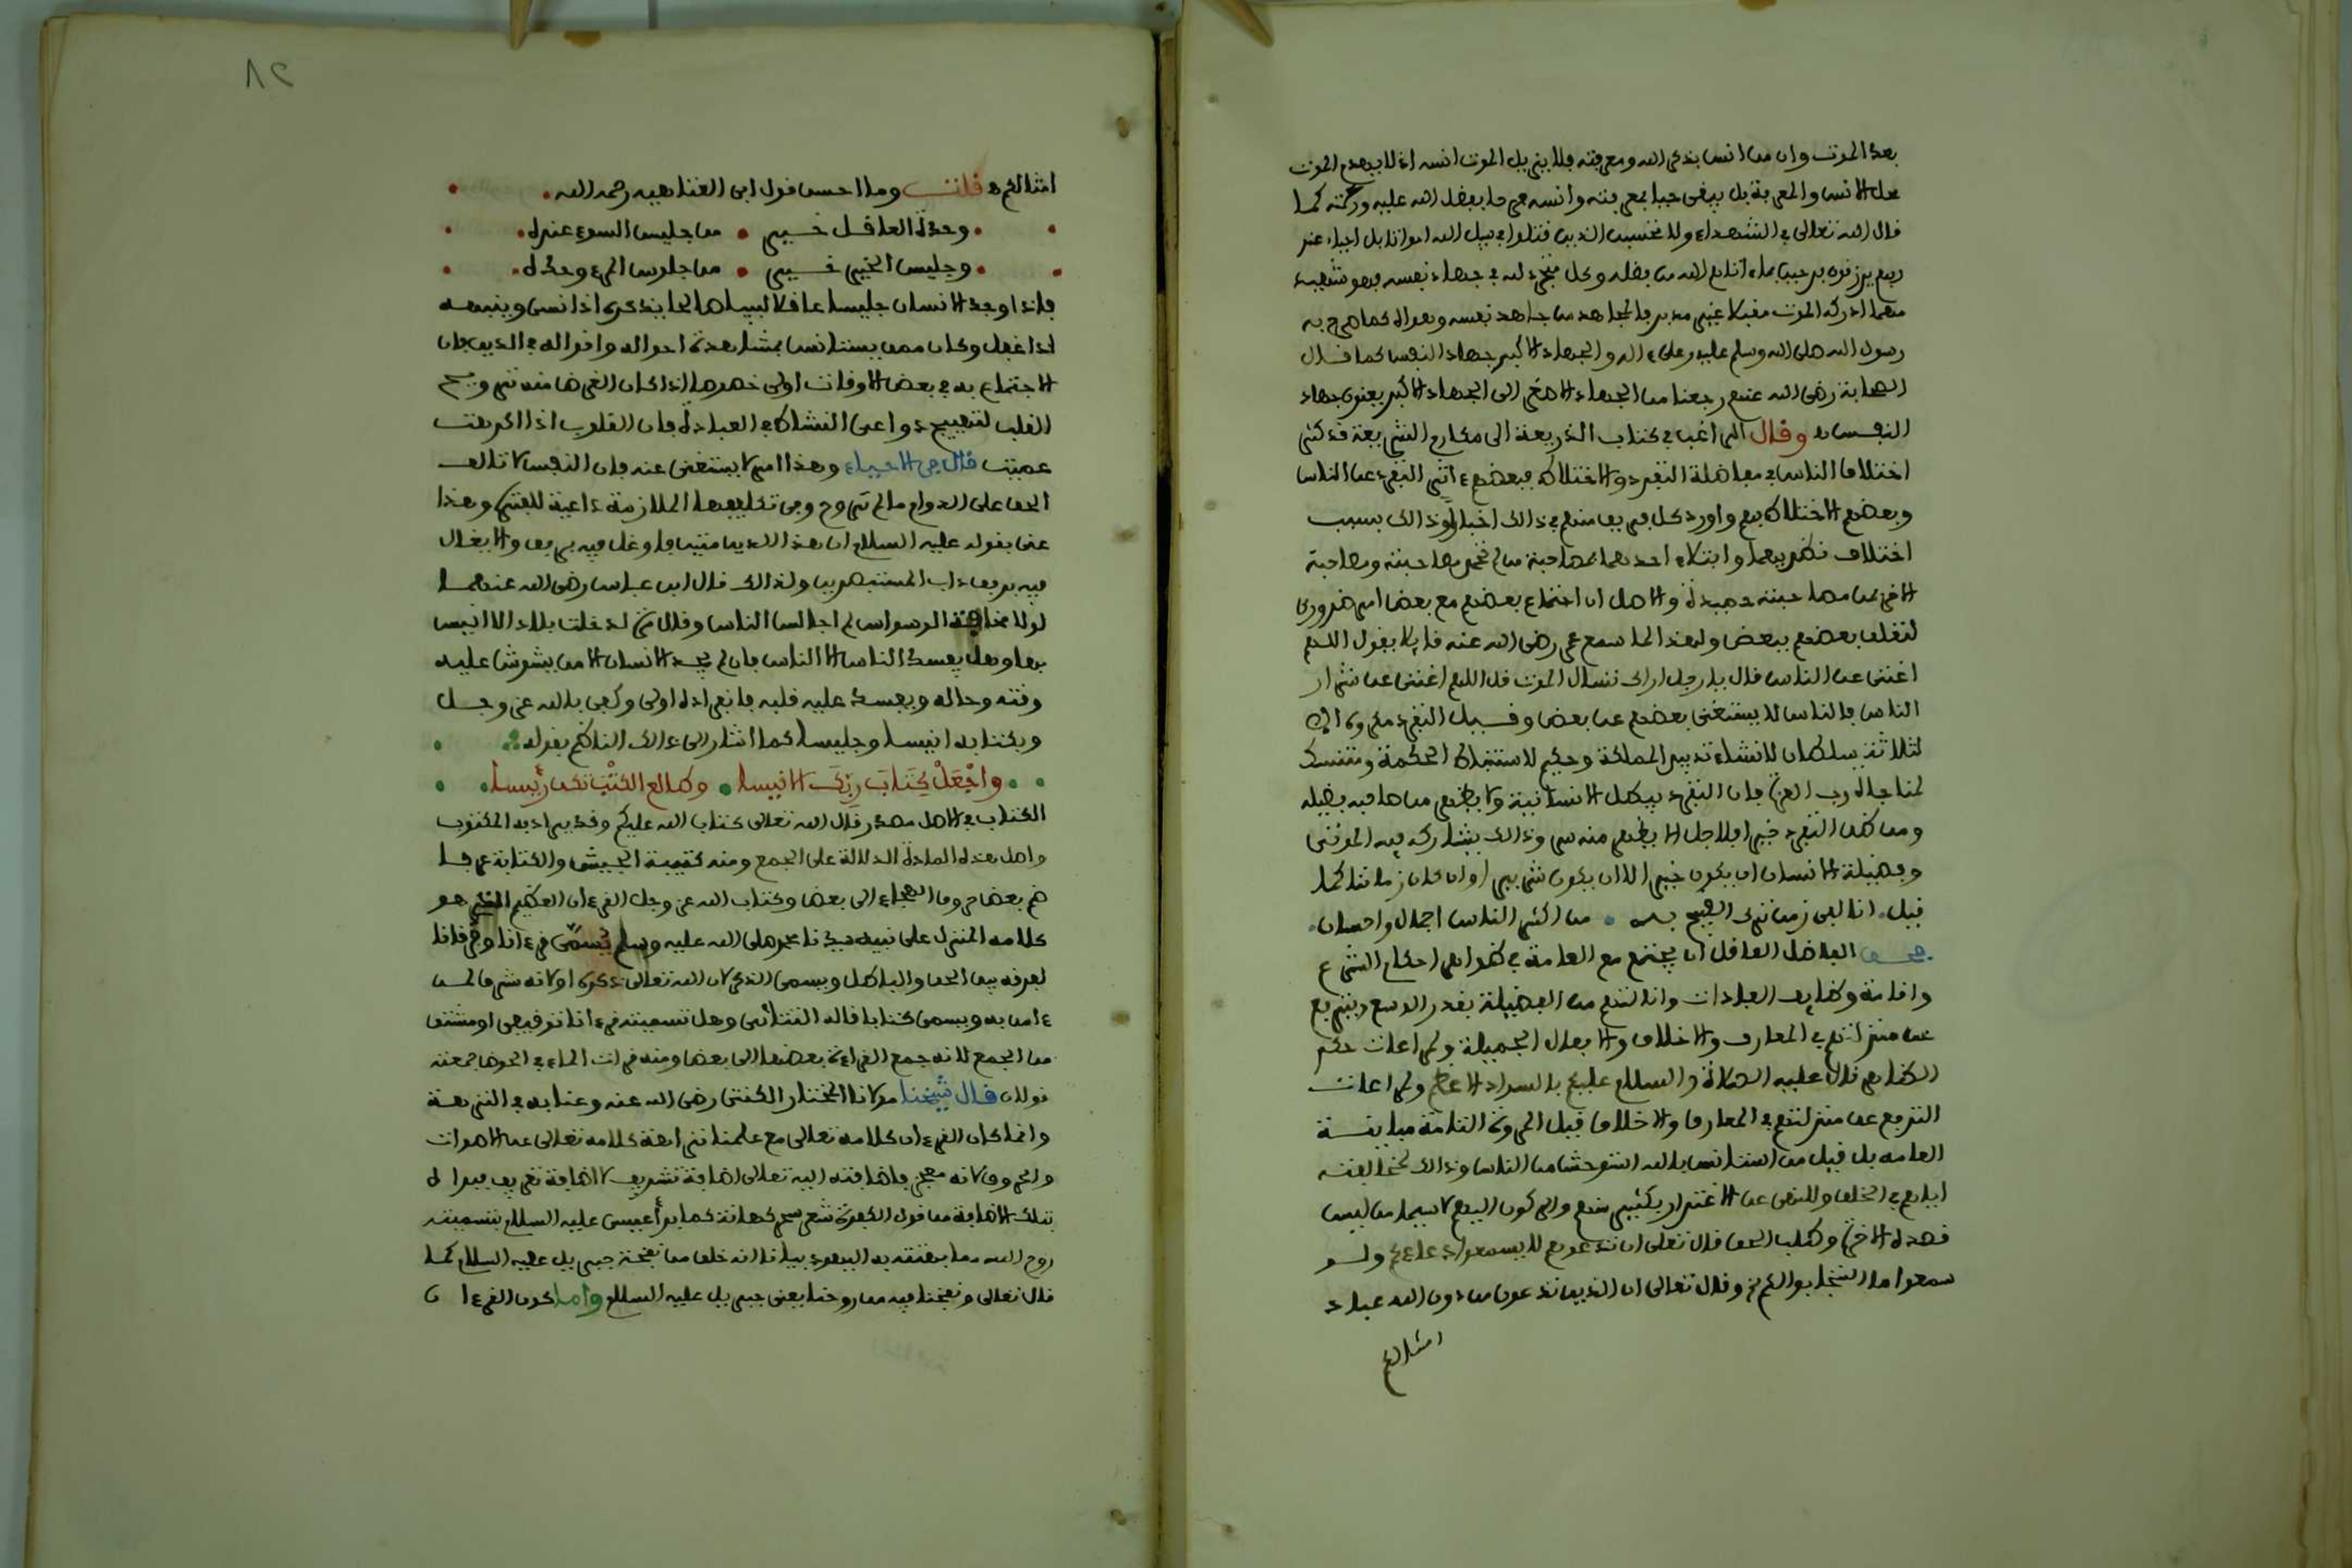 بعد الموت وان من انس بذكر الله ومعرفته فلا يزيل الموت انسه اذ لا يهدم الموت
محل الانس والمعرفة بل يبقى حيا بمعرفته وانسه فرحا بفضل الله عليه ورحمته كما
قال الله تعالى في الشهداء ولا تحسبن الذين قتلوا في سبيل الله امواتا بل احياء عند
ربهم يرزقون فرحين بما ءاتاهم الله من فضله وكل متجرد لله في جهاد نفسه فهو شهيد
مهما ادركه الموت مقبلا غير مدبر فالمجاهد من جاهد نفسه وهواه كما صرح به
رسول الله صلى الله وسلم عليه وعلى ءاله والجهاد الاكبر جهاد النفس كما قال
الصحابة رضي الله عنهم رجعنا من الجهاد الاصغر الى الجهاد الاكبر يعنون جهاد
النفس وقال الراغب في كتاب الذريعة الى مكارم الشريعة قد كثر
اختلاف الناس في مفاضلة التفرد والاختلاط فبعضهم ءاثر التفرد عن الناس
وبعضهم الاختلاط بهم واورد كل فريق منهم في ذلك اخبارا وذالك بسبب
اختلاف نظريهما وابتلاء احدهما بمصاحبة من لم تحمد مصاحبته ومصاحبة
الاخر من مصاحبته حميدة والاصل ان اجتماع بعضهم مع بعض امر ضروري
لتعلق بعضهم ببعض ولهذا لما سمع عمر رضي الله عنه قايلا يقول اللهم
اغنني عن الناس قال يا رجل اراك تسال الموت قل اللهم اغنني عن شرار
الناس فالناس لا يستغني بعضهم عن بعض وقيل التفرد مكروه الا
لثلاثة سلطان لانشاء تدبير المملكة وحكيم لاستنباط الحكمة ومتنسك
لمناجات رب العزة فان التفرد يبطل الانسانية ولا يظهر من صاحبه فضيلة
ومن ظن التفرد خيرا فلاجل الا يظهر منه شر وذالك يشاركه فيه الموتى
وفضيلة الانسان ان يكون خيرا لا ان يكون شريرا وان كان زماننا كما
قيل انا لفي زمن ترك القبيح به من اكثر الناس اجمال واحسان
فحق الفاضل العاقل ان يجتمع مع العامة في ظواهر احكام الشرع
واقامة وظايف العبادات وانالتهم من الفضيلة بقدر الوسع ويترفع
عن منزلتهم في المعارف والاخلاق والافعال الجميلة ولمراعات حكم
الظاهر قال عليه الصلاة والسلام عليكم بالسواد الاعظم ولمراعات
الترفع عن منزلتهم في المعارف والاخلاق قيل المروة التامة مباينة
العامه بل قيل من استانس بالله استوحش من الناس وذالك لمخالفته
اياهم في الخلق وللنهي عن الاغترار بكثير منهم والركون اليهم لا سيما من ليس
قصده الاخرة وطلب الحق قال تعالى ان تدعوهم لا يسمعوا دعاءكم ولو
سمعوا ما استجابوا لكم وقال تعالى ان الذين تدعون من دون الله عباد
امثالكم
٨٢
امثالكم قلت وما احسن قول ابي العتاهيه رحمه الله
وحدة العاقل خير من جليس السوء عنده
وجليس الخير خير من جلوس المرء وحده
فاذا وجد الانسان جليسا عاقلا لبيبا صالحا يذكره اذا نسي وينبهه
اذا غفل وكان ممن يستانس بمشاهدة احواله واقواله في الدين فان
الاجتماع به في بعض الاوقات اولى خصوصا اذا كان الغرض منه ترويح
القلب لتهييج دواعي النشاط في العبادة فان القلوب اذا اكرهت
عميت قال في الاحياء وهذا امر لا يستغنى عنه فان النفس لا تالف
الحق على الدوام ما لم تروح وفي تكليفها الملازمة داعية للفترة وهذا
عنى بقوله عليه السلام ان هذا الدين متين فاوغل فيه برفق والايغال
فيه برفق داب المستبصرين ولذالك قال ابن عباس رضي الله عنهما
لولا مخافة الوسواس لم اجالس الناس وقال مرة لدخلت بلادا لا انيس
بها وهل يفسد الناس الا الناس فان لم يجد الانسان الا من يشوش عليه
وقته وحاله ويفسد عليه قلبه فانفراده اولى وكفى بالله عز وجل
وبكتابه انيسا وجليسا كما اشار الى ذالك الناظم بقوله
واجعل كتاب ربك الانيسا وطالع الكتب تكن رئيسا
الكتاب في الاصل مصدر قال الله تعالى كتاب الله عليكم وقد يراد به المكتوب
واصل هذه المادة الدلالة على الجمع ومنه كتيبة الجيش والكتابة عرفا
ضم بعض حروف الهجاء الى بعض وكتاب الله عز وجل القرءان العظيم الذي هو
كلامه المنزل على نبيه سيدنا محمد صلى الله عليه وسلم يسمى قرءانا وفرقانا
لفرقه بين الحق والباطل ويسمى الذكر لان الله تعالى ذكره او لانه شرف لمن
ءامن به ويسمى كتابا قاله التتائي وهل تسميته قرءانا توقيفي او مشتق
من الجمع لانه جمع القراءة بعضها الى بعض ومنه قرات الماء في الحوض جمعته
قولان قال شيخنا مولانا المختار الكنتي رضي الله عنه وعنا به في النزهة
وانما كان القرءان كلامه تعالى مع علمنا تنزاهة كلامه تعالى عن الاصوات
والحروف لانه معجز فاضافته اليه تعالى اضافة تشريف لا اضافة تعريف فبراه
بتلك الاضافة من قول الكفرة شعر سحر كهانة كما برأ عيسى عليه السلام بتسميته
روح الله مما بهتته به اليهود بيانا انه خلق من نفخة جبريل عليه السلام كما
قال تعالى ونفخنا فيه من روحنا يعني جبريل عليه السلام واما كون القرءان